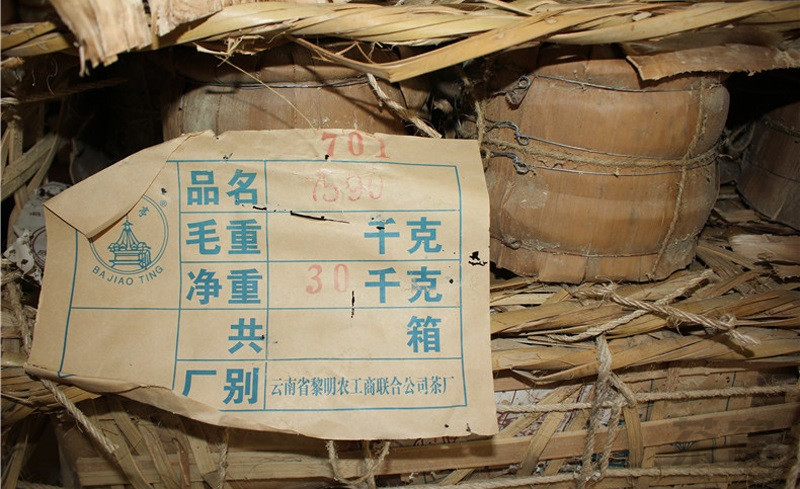 701
品名 7590
毛重 千克
净重 30 千克
共 箱
厂别 云南省黎明农工商联合公司茶厂
®
BA JIAO TING